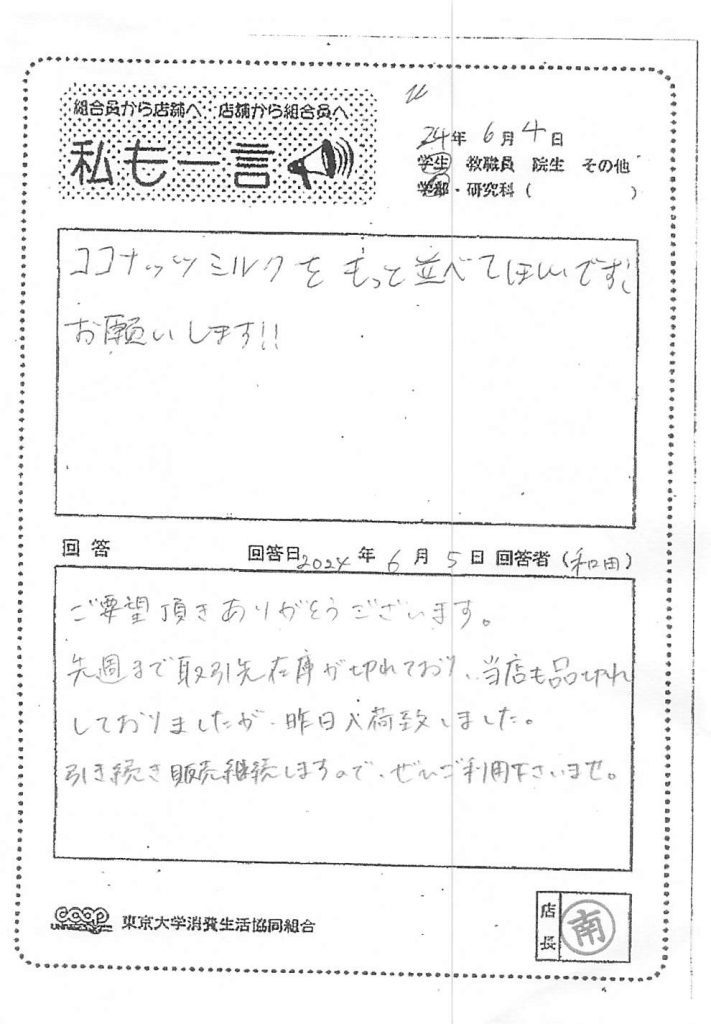 組合員から店舗へ…店舗から組合員へ
私も一言
24年6月4日
学生 教職員 院生 その他
学部・研究科( )
ココナッツミルクをもっと並べてほしいです!
お願いします!!
回答 回答日2024年6月5日 回答者(和田)
ご要望頂きありがとうございます。
先週まで取引先在庫が切れており、当店も品切れ
しておりましたが、昨日入荷致しました。
引き続き販売継続しますので、ぜひご利用下さいませ。
coop 東京大学消費生活協同組合
店長 南